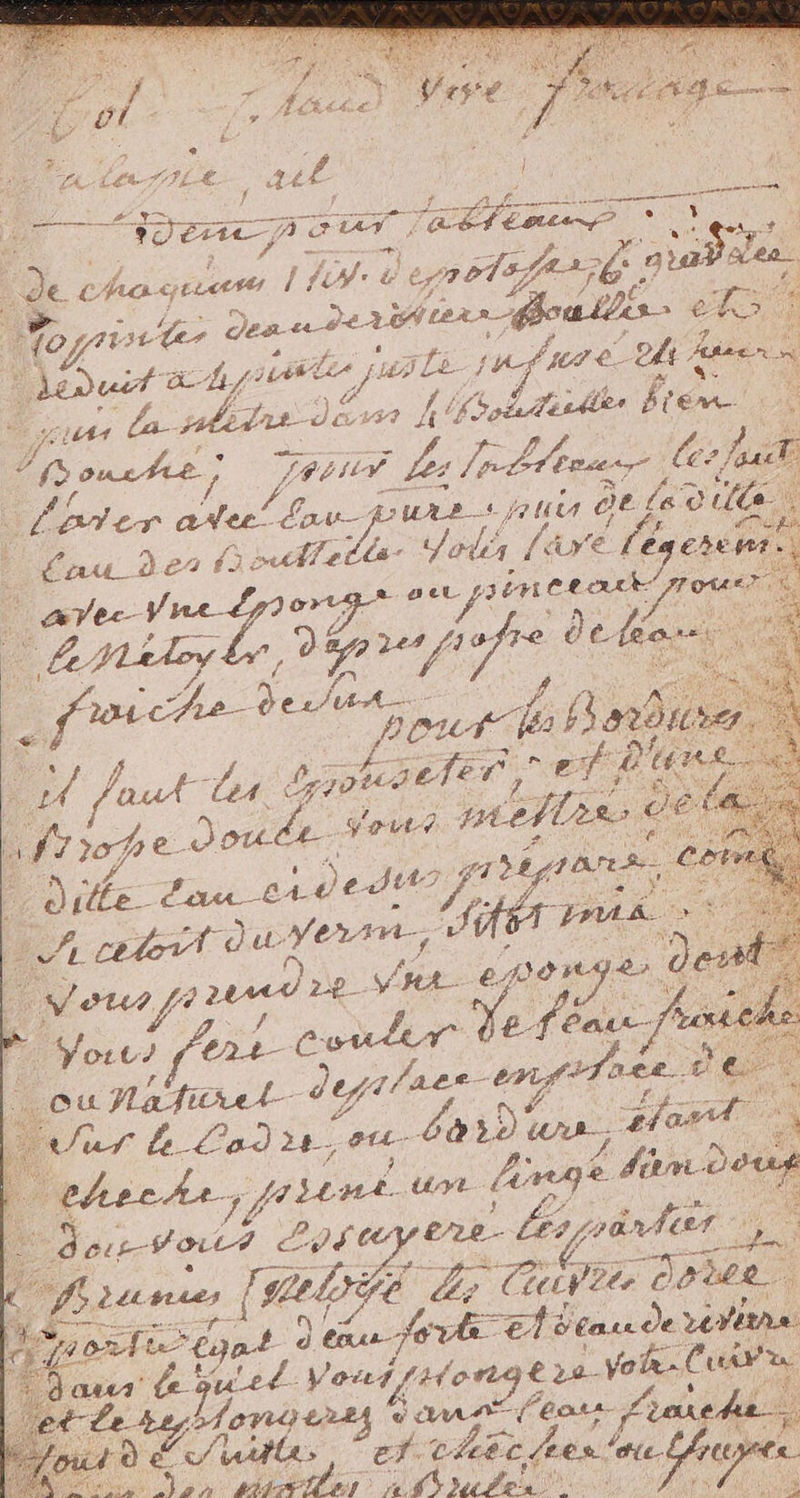 Col Chaud Vive fromage
ail
idem pour tableaux
De chaquum 1 liv. De potasse, & gravelée
10 pintes deau de riviere Boullie et
Reduit a 4 pintes juste infusé 24 heures
puis la metre dans Bouteilles bien
Bouché; pour les tableaux les faut
laver avec Eau pure puis de la ditte
Eau Des Bouttelles Voles lavé légerem.
avec Vne Eponge ou pinceau pour
le Netoyer, Dapres passé De leau
fraiche desus
pour les Bordures
il faut les Epouseter; et D'une
Brosse Douce Vous mettre De la
Ditte Eau cidesus préparé comē
Si cetoit du Verni, Sitot mis
Vous prendre Vne eponge Dont
Vous feré couler De l'eau fraiche
ou Naturel De place en place De
Sur le Cadre, ou bordure, étant
cheche, prené un linge bien doux
dou Vous Essuyeré les parties
Brunies [Netoyé les Cuivres doree
portie égal D'eau forte et deau de riviere
Dans le quel Vous plongere Votr. Cuivre
et le replongerez dans l'eau fraiche
tout De Suitte, et checher ou Essuyer
Dans des mottes a Bruler.